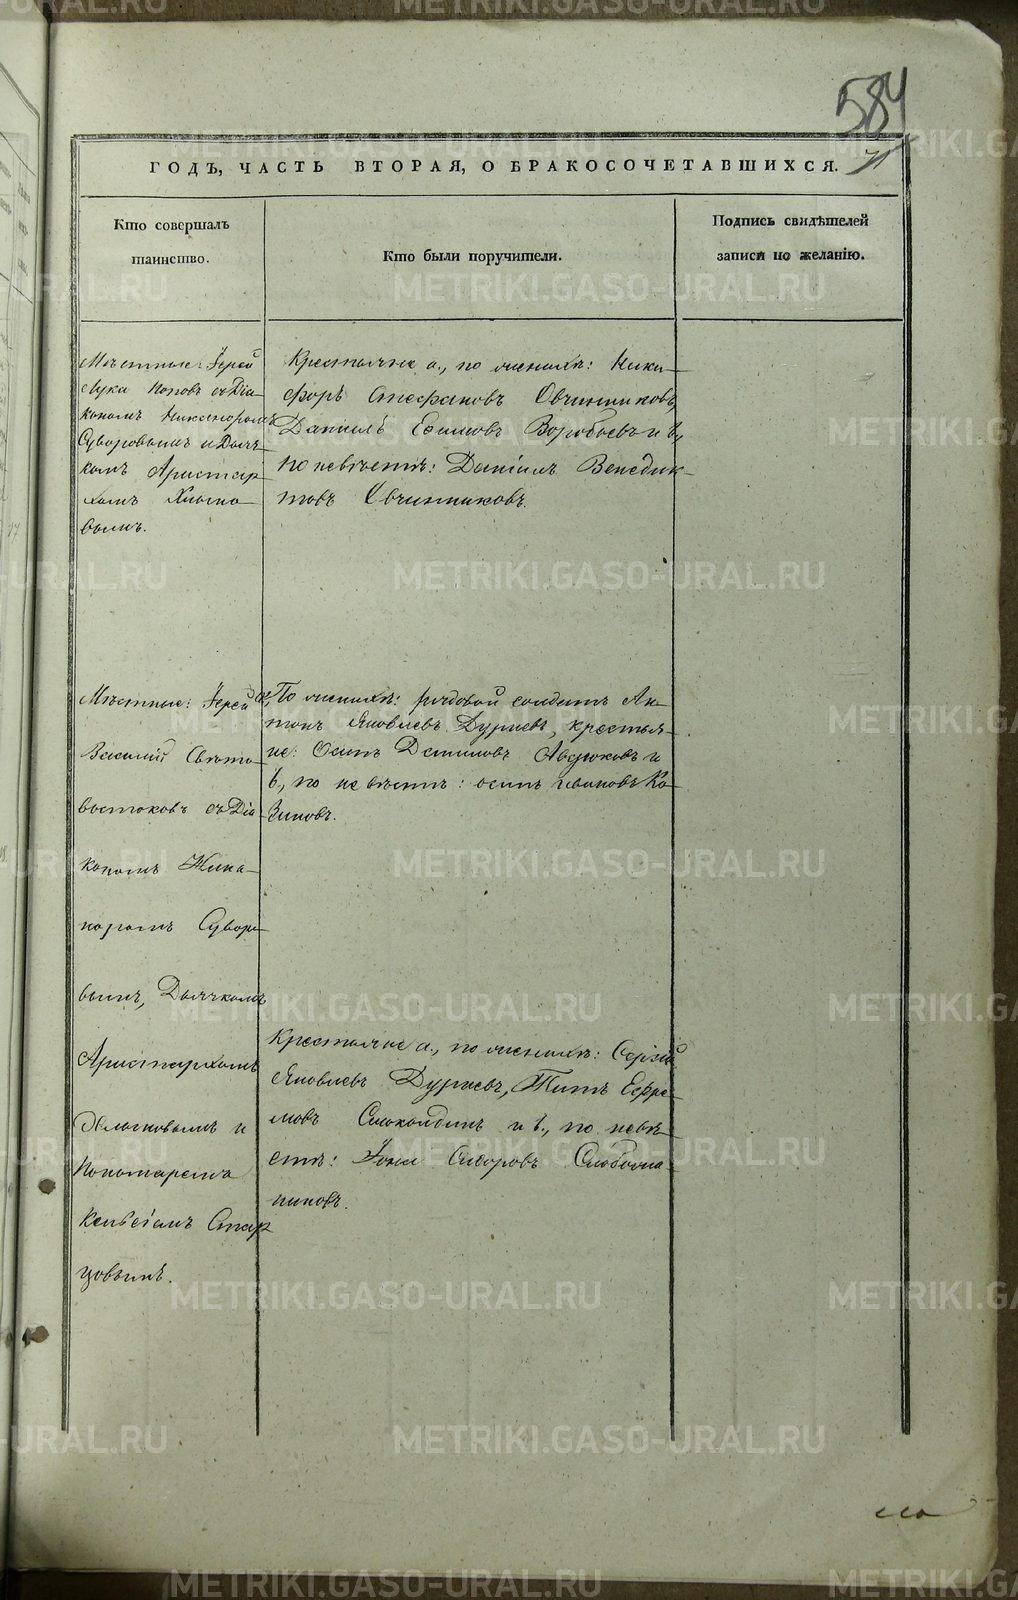 584
71
ГОДЪ, ЧАСТЬ ВТОРАЯ, О БРАКОСОЧЕТАВШИХСЯ.
Кто совершалъ
таинство.
Кто были поручители.
Подпись свидѣтелей
записи по желанію.
Мѣстные: Іерей
Лука Поповъ съ Діа-
кономъ Никаноромъ
Суворовымъ и Дьяч-
комъ Аристар-
хомъ
вымъ.
Крестьяне а., по женихѣ: Ники-
форъ Стефановъ Овчинниковъ,
Даніилъ Ефимовъ Воробьевъ и б.,
по невѣстѣ: Даніилъ Венедик-
товъ Овчинниковъ.
Мѣстные: Іерей
Василій Свѣто-
востоковъ съ Діа-
кономъ Ника-
норомъ Суворо-
вымъ, Дьячкомъ
Аристархомъ
и
Пономаремъ
Стар-
цовымъ.
а, По женихѣ: рядовой солдатъ Ан-
тонъ Яковлевъ Дурневъ, крестья-
не: Осипъ Даниловъ Авдюковъ и
б., по невѣстѣ: Осипъ Ивановъ Ко-
зиновъ.
Крестьяне а., по женихѣ: Сергій
Яковлевъ Дурневъ, Титъ Ефре-
мовъ и б., по невѣ-
стѣ: Іона Сидоровъ Слободча-
никовъ.
METRIKI.GASO-URAL.RU